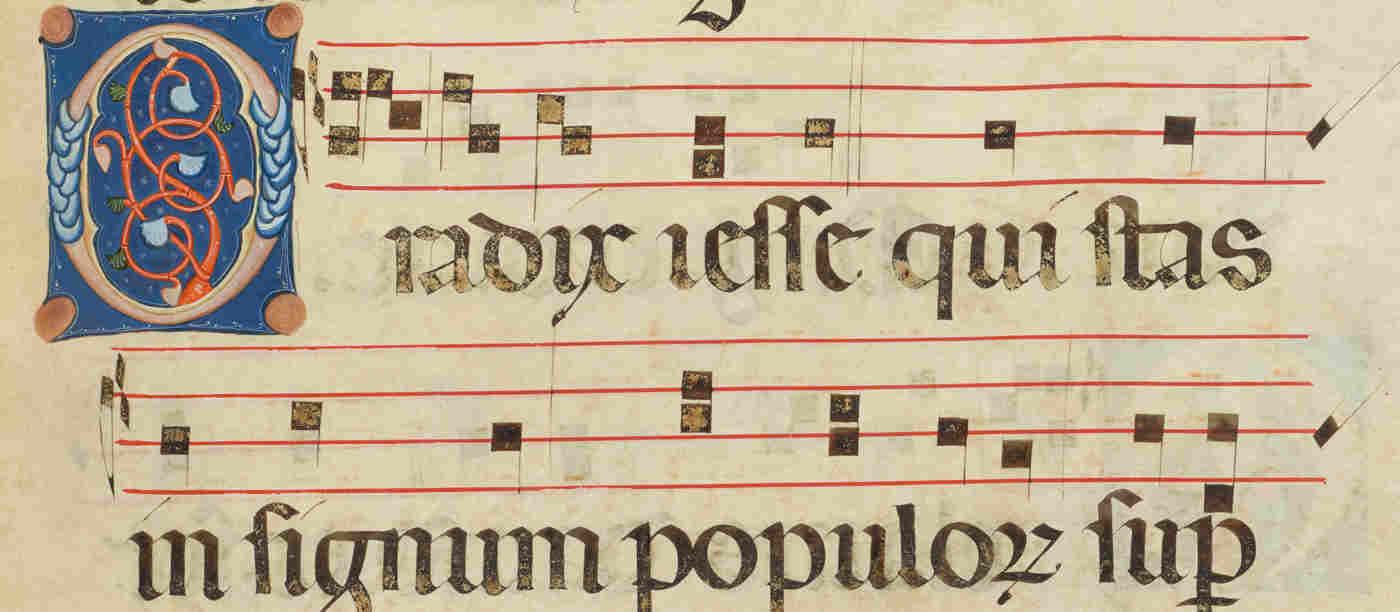 O radix iesse qui stas
in signum populoꝝ sup̲